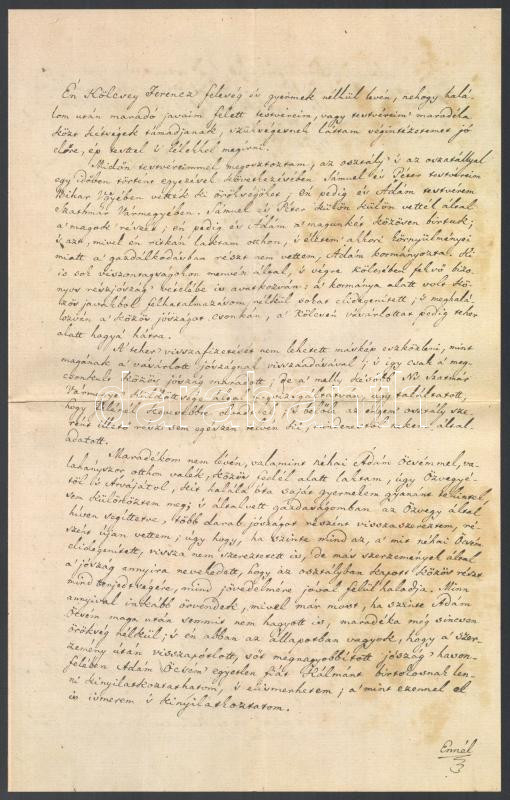 Én Kölcsey Ferencz feleség és gyermek nélkül lévén, nehogy halá-
lom után maradó javaim felett testvéreim, vagy testvéreim' maradéka
közt kétségek támadjanak, szükségesnek láttam végintézetemet jó
előre, ép testtel s lélekkel megírni.
Midőn testvéreimmel megosztoztam; az osztály' s az osztállyal
egy időben történt egyezés' következésében Sámuel és Péter testvéreim
Bihar Vgyében vették ki örökségöket; én pedig és Ádám testvérem
Szathmár Vármegyében. Sámuel és Péter külön külön vették által
a' magok' részét; én pedig és Ádám a' magunkét közösen bírtuk;
s azt, mivel én ritkán laktam otthon, s éltem' akkori környülményei
miatt a' gazdálkodásban részt nem vettem, Ádám kormányozta. Ki
is sok viszontagságokon menvén által, s végre Kölcsében fekvő bizo-
nyos részjószág' vételébe is avatkozván: a' kormánya alatt volt kö-
zös javakból felhatalmazásom nélkül sokat elidegenített; s meghalá-
lozván a' közös jószágot csonkán, a' Kölcsén vásárlottat pedig teher
alatt hagyá hátra.
A' teher' visszafizetését nem lehetett máskép eszközleni, mint
magának a' vásárlott jószágnak visszaadásával; s így csak a' meg-
csonkult közös jószág maradott; de a' melly később Ns Szatmár
Vármegye' Küldöttsége által megvizsgáltatván, úgy találtatott,
hogy általa kevesebbre olvadott, s belőle az engem osztály sze-
rént illető rész sem egészen híven
adatott.
Maradékom nem lévén, valamint néhai Ádám Öcsémmel, va-
lahányszor otthon valék, közös fedél alatt laktam, úgy Özvegyé-
től is Árvájától, kit halála óta saját gyermekem gyanánt tekintek,
sem különöztem meg; s általvett gazdaságomban az Özvegy által
híven segíttetve, több darab jószágot részint visszaszereztem, ré-
szint újan vettem; úgy hogy, ha szinte mind az, a' mit néhai Öcsém
elidegenített, vissza nem szereztetett is, de más szerzemények által
a' jószág annyira nevekedett, hogy az osztályban kapott közös részt
mind terjedtségére, mind jövedelmére jóval felül haladja. Minn
annyival inkább örvendek, mivel már most, ha szinte Ádám
Öcsém maga után semmit nem hagyott is, maradéka még sincsen
örökség nélkül; s én abban az állapotban vagyok, hogy a' szer-
zemény után visszapótlott, sőt megnagyobbított jószág' hason-
felében Ádám Öcsém' egyetlen fiát Kálmánt birtokosnak len-
ni kinyilatkoztathatom, s elismerhetem; a' mint ezennel el
is ismerem s kinyilatkoztatom.
Ennél